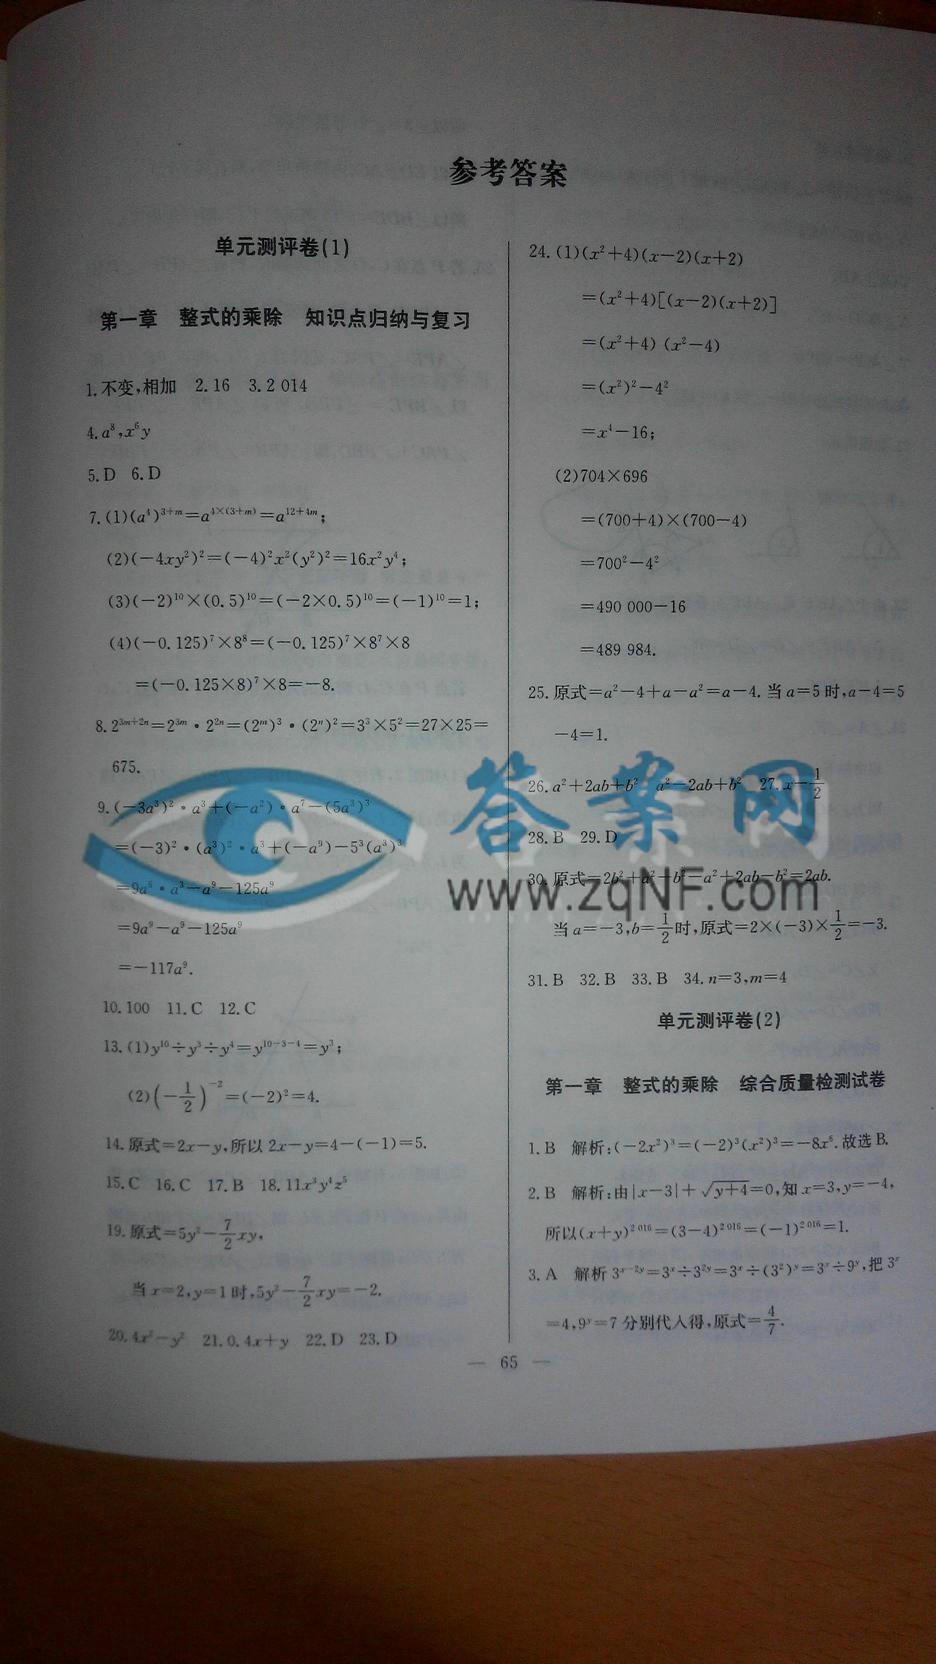 参考答案
单元测评卷(1)
第一章　整式的乘除　知识点归纳与复习
1.不变,相加　2.16　3.2 014
4.a⁸,x⁶y
5.D　6.D
7.(1)(a⁴)³⁺ᵐ=a⁴ˣ⁽³⁺ᵐ⁾=a¹²⁺⁴ᵐ;
(2)(−4xy²)²=(−4)²x²(y²)²=16x²y⁴;
(3)(−2)¹⁰×(0.5)¹⁰=(−2×0.5)¹⁰=(−1)¹⁰=1;
(4)(−0.125)⁷×8⁸=(−0.125)⁷×8⁷×8
=(−0.125×8)⁷×8=−8.
8.2³ᵐ⁺²ⁿ=2³ᵐ·2²ⁿ=(2ᵐ)³·(2ⁿ)²=3³×5²=27×25=
675.
9.(−3a³)²·a³+(−a²)·a⁷−(5a³)³
=(−3)²·(a³)²·a³+(−a⁹)−5³(a³)³
=9a⁶·a³−a⁹−125a⁹
=9a⁹−a⁹−125a⁹
=−117a⁹.
10.100　11.C　12.C
13.(1)y¹⁰÷y³÷y⁴=y¹⁰⁻³⁻⁴=y³;
(2)(−1/2)⁻²=(−2)²=4.
14.原式=2x−y,所以2x−y=4−(−1)=5.
15.C　16.C　17.B　18.11x³y⁴z⁵
19.原式=5y²−7/2xy,
当x=2,y=1时,5y²−7/2xy=−2.
20.4x²−y²　21.0.4x+y　22.D　23.D
24.(1)(x²+4)(x−2)(x+2)
=(x²+4)[(x−2)(x+2)]
=(x²+4)(x²−4)
=(x²)²−4²
=x⁴−16;
(2)704×696
=(700+4)×(700−4)
=700²−4²
=490 000−16
=489 984.
25.原式=a²−4+a−a²=a−4.当a=5时,a−4=5
−4=1.
26.a²+2ab+b²　a²−2ab+b²　27.x−1/2
28.B　29.D
30.原式=2b²+a²−b²−a²+2ab−b²=2ab.
当a=−3,b=1/2时,原式=2×(−3)×1/2=−3.
31.B　32.B　33.B　34.n=3,m=4
单元测评卷(2)
第一章　整式的乘除　综合质量检测试卷
1.B　解析:(−2x²)³=(−2)³(x²)³=−8x⁶.故选B.
2.B　解析:由|x−3|+√(y+4)=0,知x=3,y=−4,
所以(x+y)²⁰¹⁶=(3−4)²⁰¹⁶=(−1)²⁰¹⁶=1.
3.A　解析3ˣ⁻²ʸ=3ˣ÷3²ʸ=3ˣ÷(3²)ʸ=3ˣ÷9ʸ,把3ˣ
=4,9ʸ=7分别代入得,原式=4/7.
— 65 —
答案网
www.zqNF.com